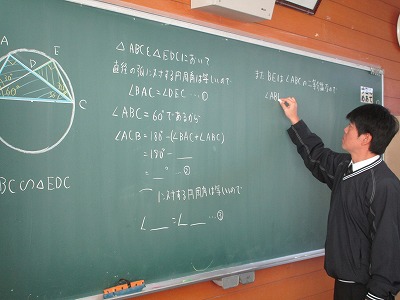 A
E
D
60°
C
BC∽△EDC
△ABCと△EDCにおいて
直径の弧に対する円周角は等しいので
∠BAC=∠DEC…①
∠ABC=60°であるから
∠ACB=180°-(∠BAC+∠ABC)
=180°-__
=__°…②
⌒に対する円周角は等しいので
∠__=∠__…③
また BEは∠ABCの二等分線なので
∠ABE